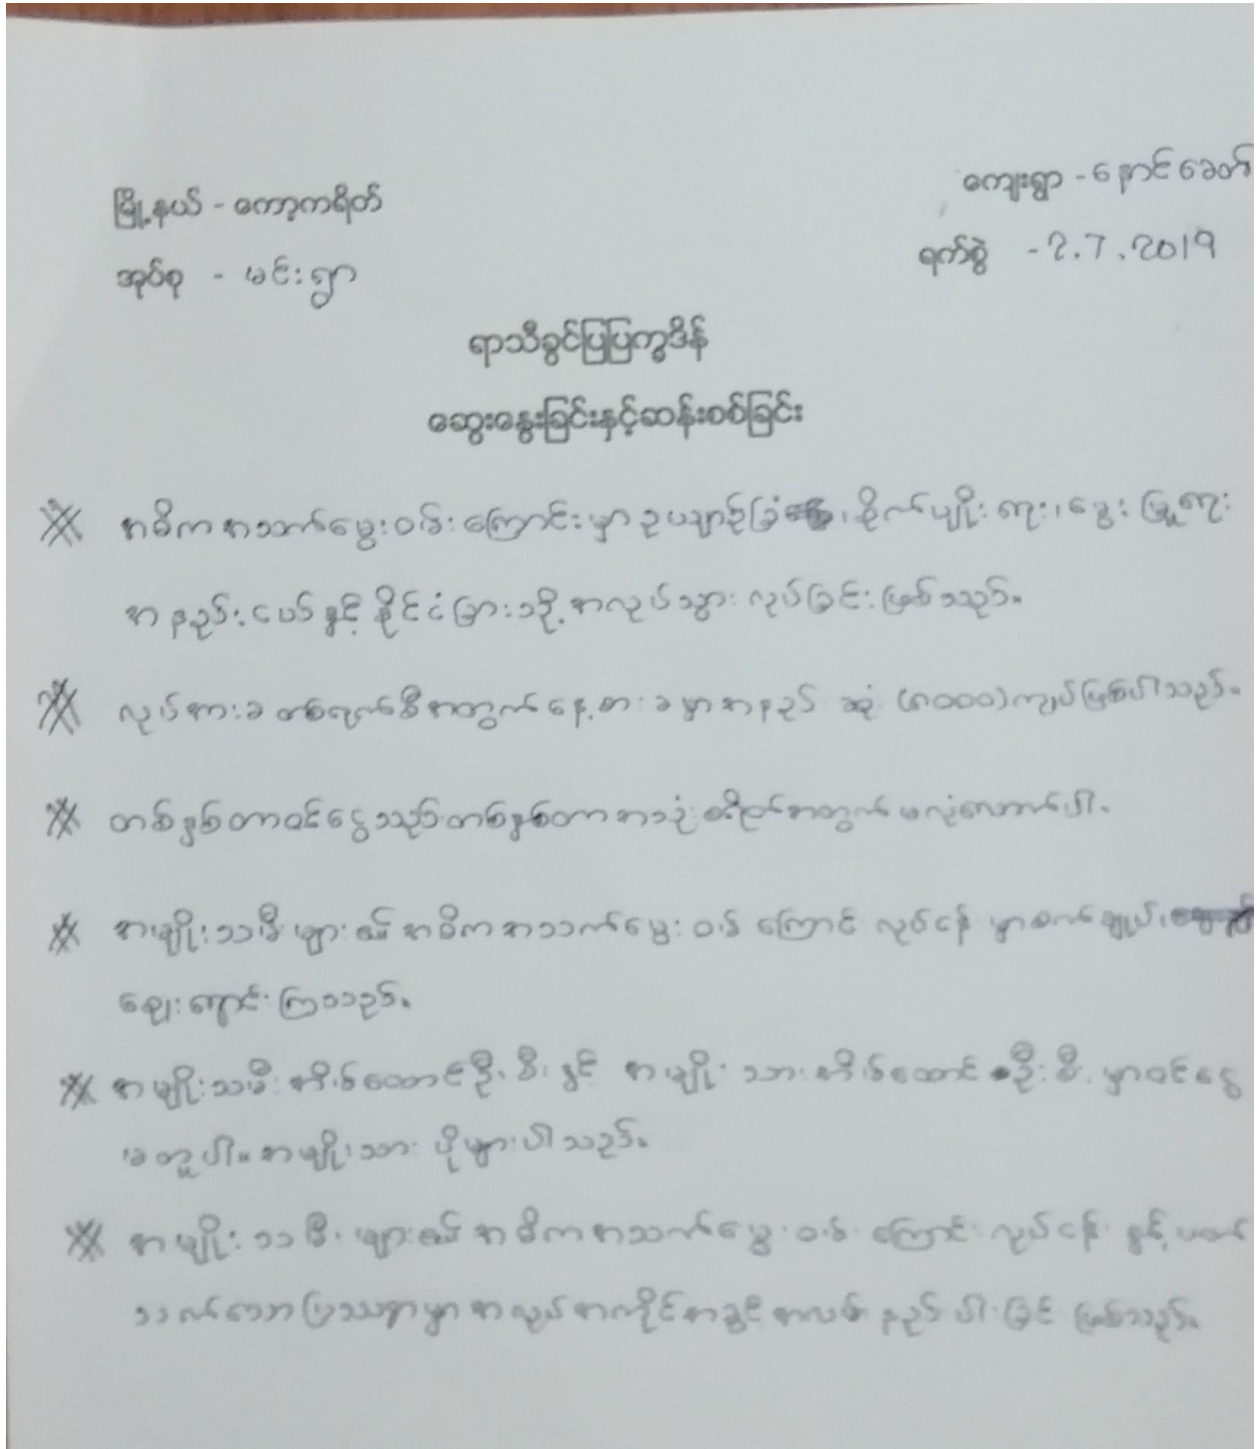 မြို့နယ် - ကော့ကရိတ် ကျေးရွာ - နောင်ခေတ်
အုပ်စု - မင်းရွာ ရက်စွဲ - 2.7.2019
ရာသီခွင်ပြပြက္ခဒိန်
ဆွေးနွေးခြင်းနှင့်ဆန်းစစ်ခြင်း
အဓိကအသက်မွေးဝမ်းကြောင်းမှာဥယျာဉ်ခြံ၊စိုက်ပျိုးရေး၊မွေးမြူရေး
အနည်းငယ်နှင့်နိုင်ငံခြားသို့အလုပ်သွားလုပ်ခြင်းဖြစ်သည်။
လုပ်အားခတစ်ရက်စီအတွက်နေ့စားခမှာအနည်းဆုံး (၈၀၀၀)ကျပ်ဖြစ်ပါသည်။
တစ်နှစ်တာဝင်ငွေသည်တစ်နှစ်တာအသုံးစရိတ်အတွက်မလုံလောက်ပါ။
အမျိုးသမီးများ၏အဓိကအသက်မွေးဝမ်းကြောင်းလုပ်ငန်းမှာစက်ချုပ်၊
ဈေးရောင်းကြသည်။
အမျိုးသမီးအိမ်ထောင်ဦးစီးနှင့် အမျိုးသားအိမ်ထောင်ဦးစီးမှာဝင်ငွေ
မတူပါ။အမျိုးသားပိုများပါသည်။
အမျိုးသမီးများ၏အဓိကအသက်မွေးဝမ်းကြောင်းလုပ်ငန်းနှင့်ပတ်
သက်သောပြဿနာမှာအလုပ်အကိုင်အခွင့်အလမ်းနည်းပါးခြင်းဖြစ်သည်။